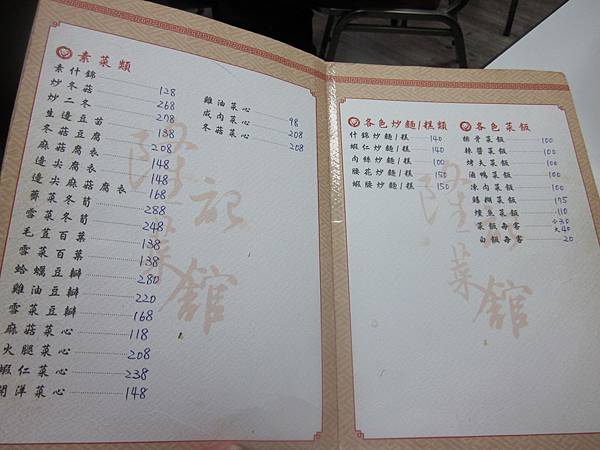 素菜類
素什錦 128
炒冬菇 268
炒二冬 278
生邊豆苗 138
冬菇豆腐 208
麻菇腐衣 148
邊尖腐衣 148
邊尖麻菇腐衣 168
薺菜冬筍 288
雪菜冬筍 248
毛荳百葉 138
雪菜百葉 138
蛤蠣豆瓣 280
雞油豆瓣 220
雪菜豆瓣 168
麻菇菜心 118
火腿菜心 208
蝦仁菜心 238
開洋菜心 148
雞油菜心 98
咸肉菜心 208
冬菇菜心 208
隆記菜館
各色炒麵/糕類
什錦炒麵/糕 140
蝦仁炒麵/糕 140
肉絲炒麵/糕 100
腰花炒麵/糕 150
蝦腰炒麵/糕 150
各色菜飯
排骨菜飯 100
辣醬菜飯 100
烤夫菜飯 100
滷鴨菜飯 100
凍肉菜飯 100
鱔糊菜飯 175
燻魚菜飯 110
菜飯每客 小30 大40
白飯每客 20
隆記菜館